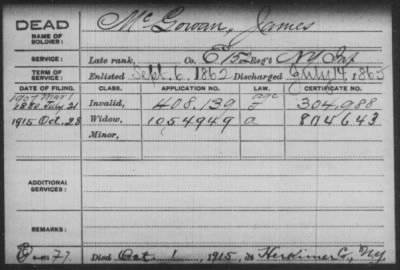 DEAD
NAME OF SOLDIER: McGowan, James
SERVICE: Late rank, Co. E 152 Reg't NY Inf
TERM OF SERVICE: Enlisted Sept. 6, 1862 Discharged July 14, 1865
DATE OF FILING. CLASS. APPLICATION NO. LAW. CERTIFICATE NO.
1907 Mar 1 age
1880 July 21 Invalid, 408.139 304,988
1915 Oct. 28 Widow, 1054949 a 804643
Minor,
ADDITIONAL SERVICES:
REMARKS:
Died Oct. 1, 1915, at Herkimer Co, NY.